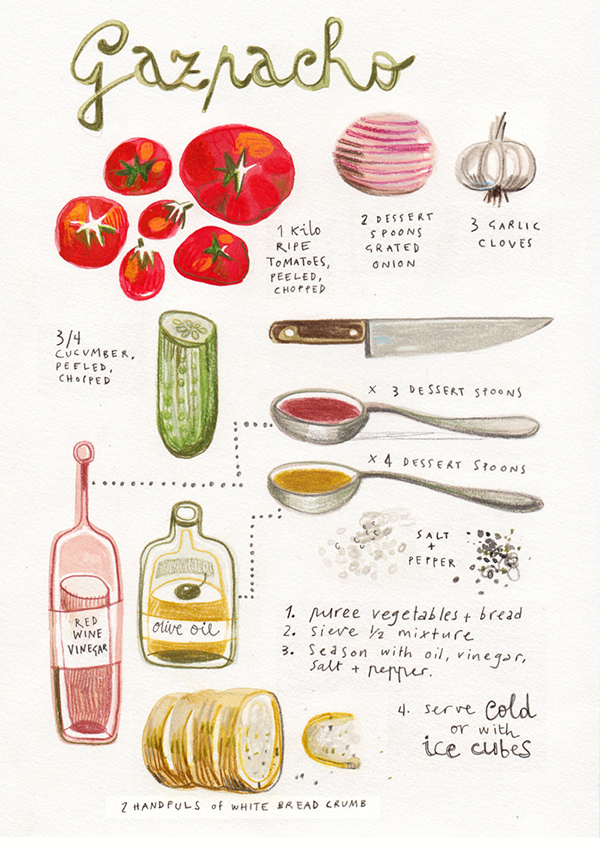 Gazpacho
1 Kilo
RIPE
TOMATOES,
PEELED,
CHOPPED
2 DESSERT
SPOONS
GRATED
ONION
3 GARLIC
CLOVES
3/4
CUCUMBER,
PEELED,
CHOPPED
x 3 DESSERT SPOONS
x 4 DESSERT SPOONS
SALT
+
PEPPER
RED
WINE
VINEGAR
olive oil
1. puree vegetables + bread
2. sieve 1/2 mixture
3. season with oil, vinegar,
salt + pepper.
4. serve cold
or with
ice cubes
2 HANDFULS of WHITE BREAD CRUMB